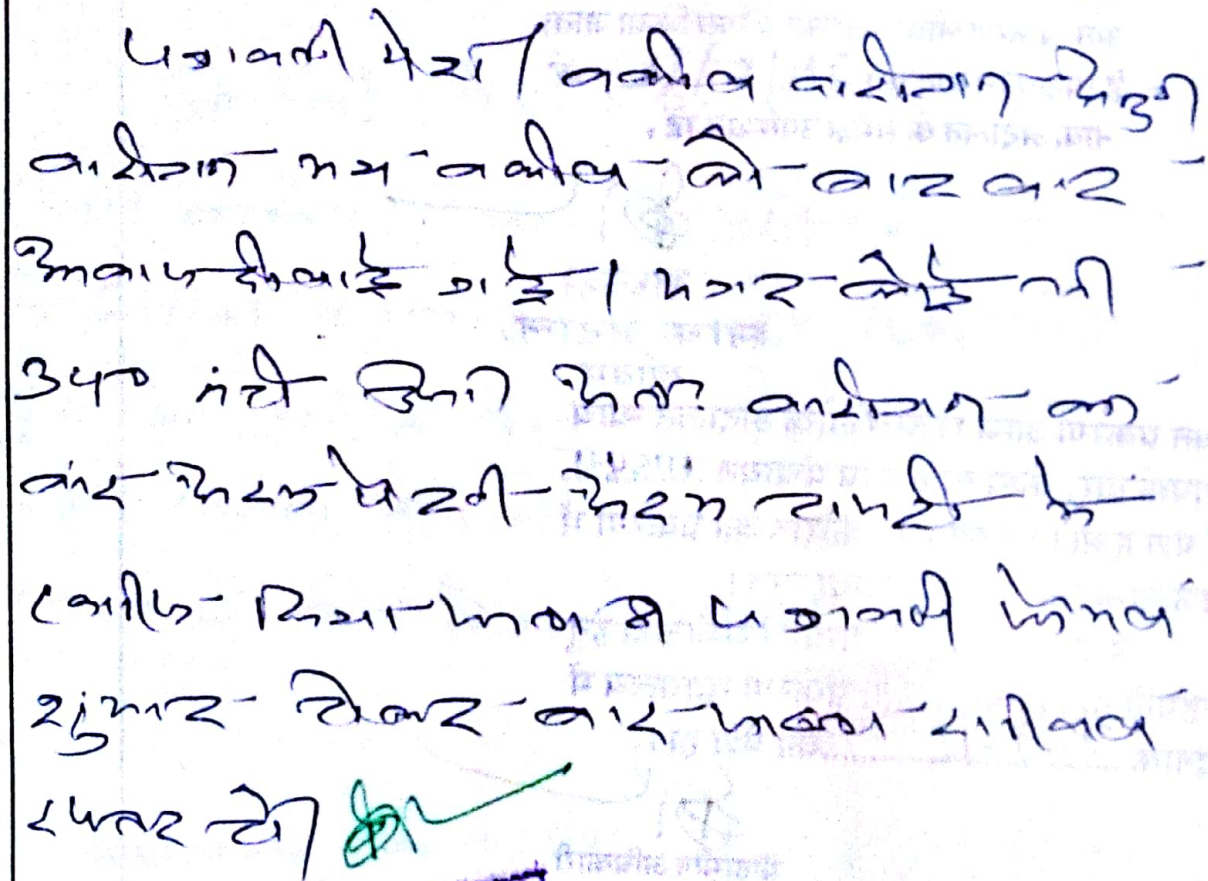 पत्रावली पेश। वकील वादीगण
वादीगण मय वकील को बार बार
आवाज दिलवाई गई। मगर कोई नही
उप० नही हुआ अतः वादीगण का
वाद अदम पैरवी अदम हाजरी मे
खारीज किया जाता है पत्रावली फैसल
शुमार होकर बाद दाखिल
दफ्तर हो।